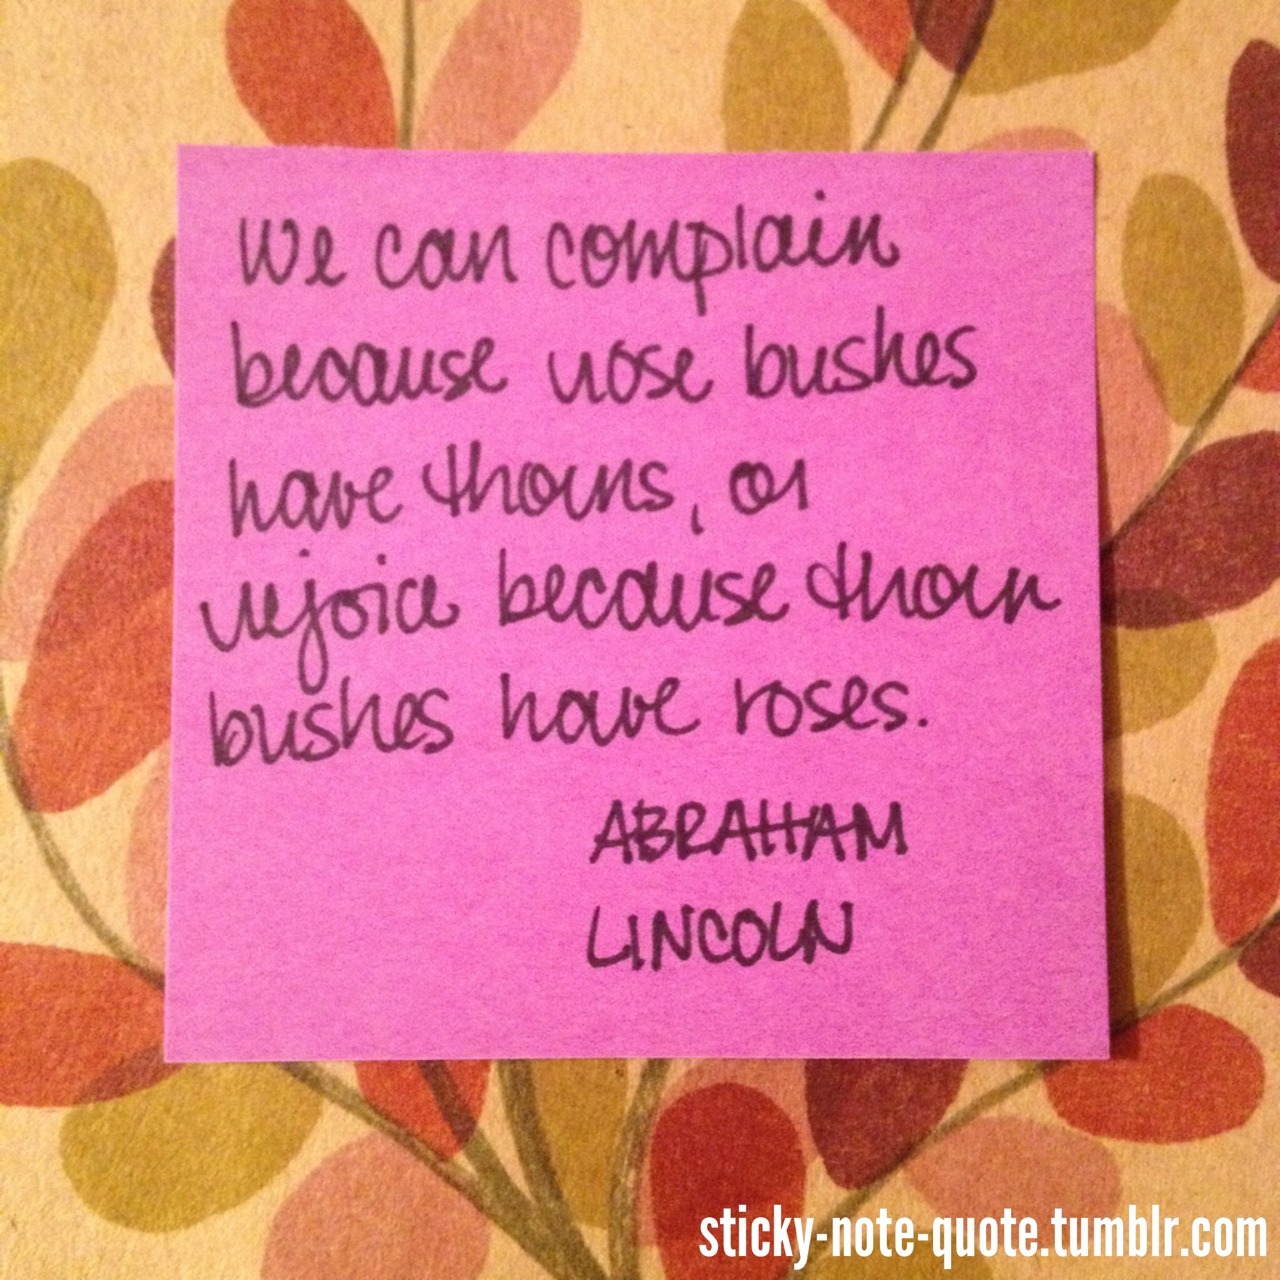 We can complain
because rose bushes
have thorns, or
rejoice because thorn
bushes have roses.
ABRAHAM
LINCOLN
sticky-note-quote.tumblr.com